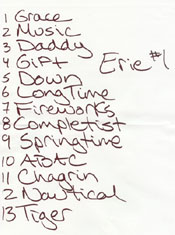 1 Grace
2 Music
3 Daddy
4 Gift
Erie #1
5 Down
6 LongTime
7 Fireworks
8 Completist
9 Springtime
10 AOAC
11 Chagrin
12 Nautical
13 Tiger